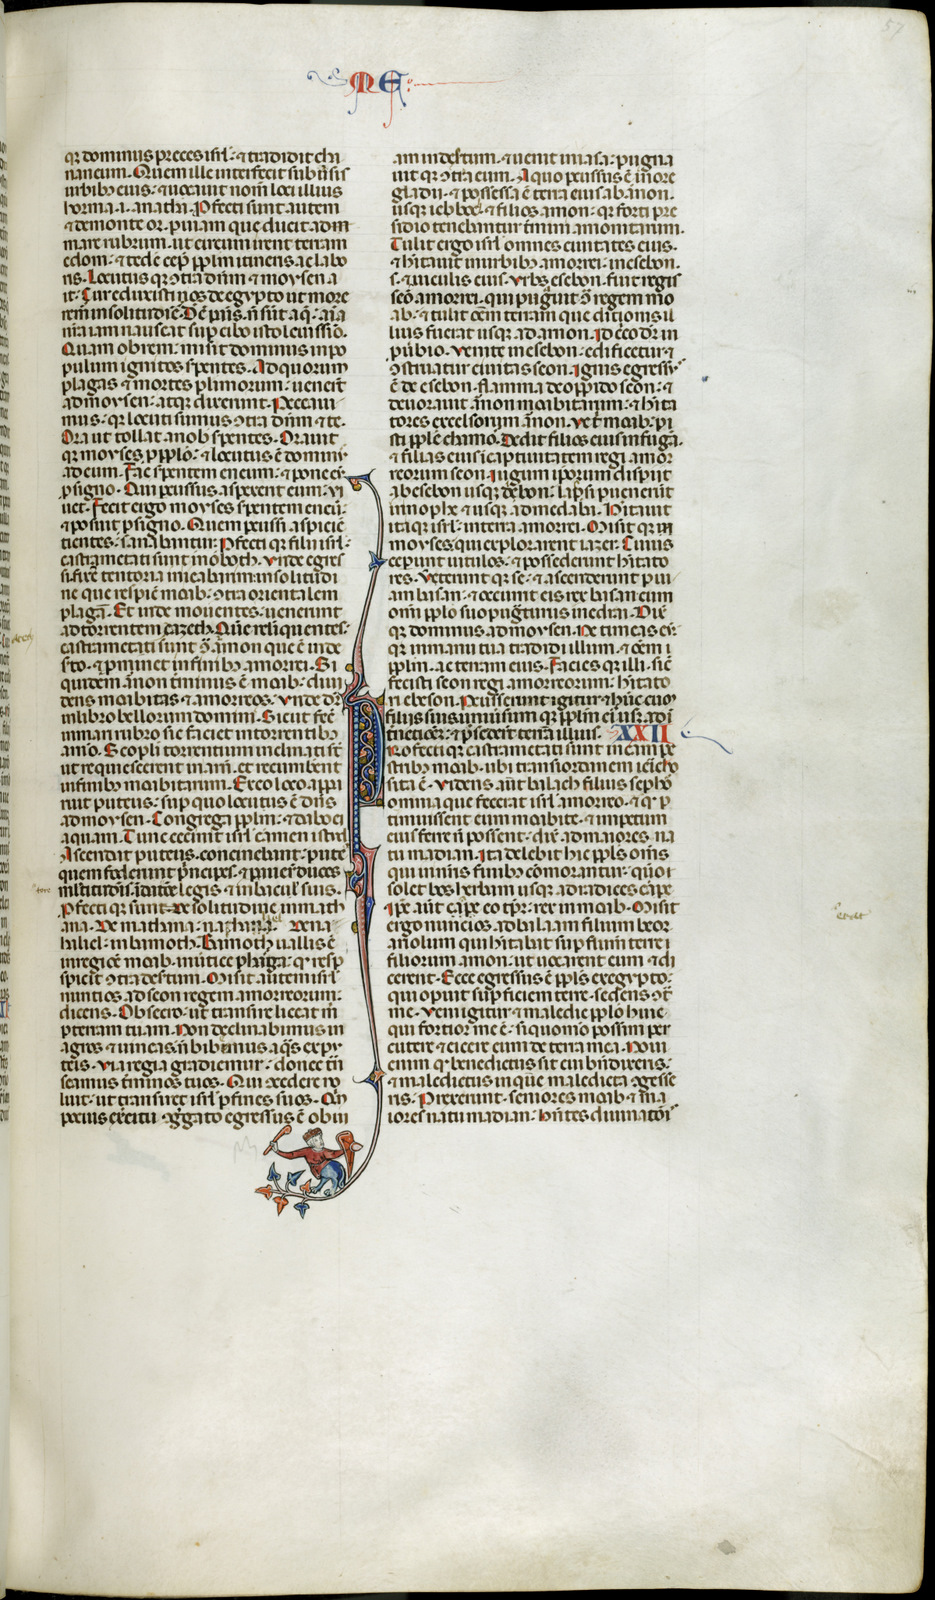 57
ME
q̄ dominus preces isrl̄· ⁊ tradidit cha
naneum· Quem ille interfecit subuersis
urbibꝫ eius· ⁊ uocauit nom̄ loci illius
horma .i. anath̄· Profecti sunt autem
⁊ de monte or· per uiam que ducit ad m
mare rubrum· ut circumirent terram
edom· ⁊ tede cep̄ pplm itineris ac labo
ris· Locutus qꝫ ↄtra dn̄m ⁊ moysen a
it· Cur eduxisti nos de egypto ut more
rem̄ in solitudīe· Deē panis· n̄ sūt aq̄· aīa
nr̄a iam nauseat sup cibo isto leuissīo·
Quam obrem· misit dominus in po
pulum ignitos serpentes· Ad quorum
plagas ⁊ mortes plurimorum· uenerūt
ad moysen· atque dixerunt· Peccaui
mus· qꝫ locuti sumus ↄtra dn̄m ⁊ te·
Ora ut tollat a nob̄ serpentes· Orauit
qꝫ moyses p pplo· ⁊ locutus ē dominus
ad eum· Fac serpentem eneum· ⁊ pone eū
p signo· Qui percussus aspexerit eum· ui
uet· Fecit ergo moyses serpentem eneū·
⁊ posuit p signo· Quem percussi aspicien
tientes· sanabantur· Profecti qꝫ filii isrl̄·
castrametati sunt in oboth· Vnde egres
si fixere tentoria in ieabarim· in solitudi
ne que respicit moab· ↄtra orientalem
plagā· Et inde mouentes· uenerunt
ad torrentem zareth· Quē relinquentes·
castrametati sunt ↄ̄ arnon que ē in de
sto· ⁊ prominet in finibꝫ amorrei· Si
quidem arnon terminus ē moab· diui
dens moabitas ⁊ amorreos· Vnde dr̄
in libro bellorum domini· Sicut fec̄
in mari rubro sic faciet in torrentibꝫ
arno· Scopuli torrentium inclinati sūt
ut requiescerent in arn̄· et recumberent
in finibꝫ moabitarum· Ex eo loco appa
ruit puteus· sup quo locutus ē dn̄s
ad moysen· Congrega pplm· ⁊ dabo ei
aquam· Tunc cecinit isrl̄ carmen istud
Ascendat puteus· concinebant· pute
quem foderunt p̄ncipes· ⁊ pauer̄ duces
multitudīs· ī datore legis· ⁊ in bacul̄ suis·
Profecti qꝫ sunt de solitudine in math
ana· De mathana· nathaliel De na
haliel· in bamoth· Bamoth uallis ē
in regiōe moab· in uertice phasga· qꝫ resp
spicit ↄtra desertum· Misit autem isrl̄
nuntios ad seon regem amorreorum·
dicens· Obsecro· ut transire liceat m̄
p terram tuam· Non declinabimus in
agros ⁊ uineas· n̄ bibemus aq̄s ex pu
teis· Via regia gradiemur· donec trā
seamus t̄minos tuos· Qui ↄcedere no
luit· ut transiret isrl̄ p fines suos· Qn̄
pocius exercitu ↄg̃gato egressus ē obui
am in desertum· ⁊ uenit in iasa· pugna
uit qꝫ ↄtra eum· A quo percussus ē in ore
gladii· ⁊ possessa ē terra eius ab arnon·
usqꝫ iebboc· ⁊ filios amon· qꝫ forti pre
sidio tenebantur t̄mini amonitarum·
Tulit ergo isrl̄ omnes ciuitates eius·
⁊ habitauit in urbibꝫ amorrei· in esebon·
s· ⁊ uiculis eius· Vrbs esebon· fuit regis
seon amorrei· qui pugnauit ↄ̄ regem mo
ab· ⁊ tulit oēm terram que dicionis il
lius fuerat usqꝫ ad arnon· Idcirco dr̄ in
puerbio· Venite in esebon· edificetur ⁊
ↄstruatur ciuitas seon· Ignis egressꝰ
ē de esebon· flamma de oppido seon· ⁊
deuorauit arnon moabitarum· ⁊ habita
tores excelsorum arnon· Ve t̄ moab· pi
sti pple chamos· Dedit filios eius in fugā·
⁊ filias eius in captiuitatem regi amor
reorum seon· Iugum ipsorum dispiit
ab esebon usqꝫ dibon· Lapsi puenerūt
in nophe· ⁊ usqꝫ ad medaba· Habitauit
itaqꝫ isrl̄ in terra amorrei· Misit qꝫ
moyses· qui explorarent iazer· Cuius
ceperunt uiculos· ⁊ possederunt habitato
res· Verterunt qꝫ se· ⁊ ascenderunt p ui
am basan· ⁊ occurrit eis rex basan cum
omni pplo suo pugnaturus in edrai· Dix̄
qꝫ dominus ad moysen· Ne timeas eū·
qꝫ in manu tua tradidi illum· ⁊ oēm
pplm· ac terram eius· Facies qꝫ illi· sic̄
fecisti seon regi amorreorum· habitato
ri esebon· Percusserunt igitur ⁊ hunc cum
filiis suis· uniuersum qꝫ pplm eius· usqꝫ ad i
t̄necionē· ⁊ possederūt terrā illius· XXII
Profecti qꝫ castrametati sunt in campe
stribꝫ moab· ubi trans iordanem iericho
sita ē· Videns aūt balach filius sephor
omnia que fecerat isrl̄ amorreo· ⁊ qꝫ p
timuissent eum moabite· ⁊ impetum
eius ferre n̄ possent· dix̄ ad maiores na
tu madian· Ita delebit hic ppls om̄s
qui in nr̄is finibꝫ cōmorantur· quōi
solet bos herbam usqꝫ ad radices carpe
Ipse aūt erat eo tpr̄e· rex in moab· Misit
ergo nuncios ad balaam filium beor
ariolum qui habitabat sup flumen terre
filiorum amon· ut uocarent eum ⁊ di
cerent· Ecce egressus ē ppls ex egypto·
qui operuit superficiem terre· sedens ↄt̄
me· Veni igitur ⁊ maledic pplo huic·
qui fortior me ē· si quomodo possim per
cutere ⁊ eicere eum de terra mea· Noui
enim qꝫ benedictus sit cui bn̄dixeris·
⁊ maledictus in que maledicta ↄgesse
ris· Perrexerunt· seniores moab ⁊ ma
iores natu madian· habentes diuinatōis